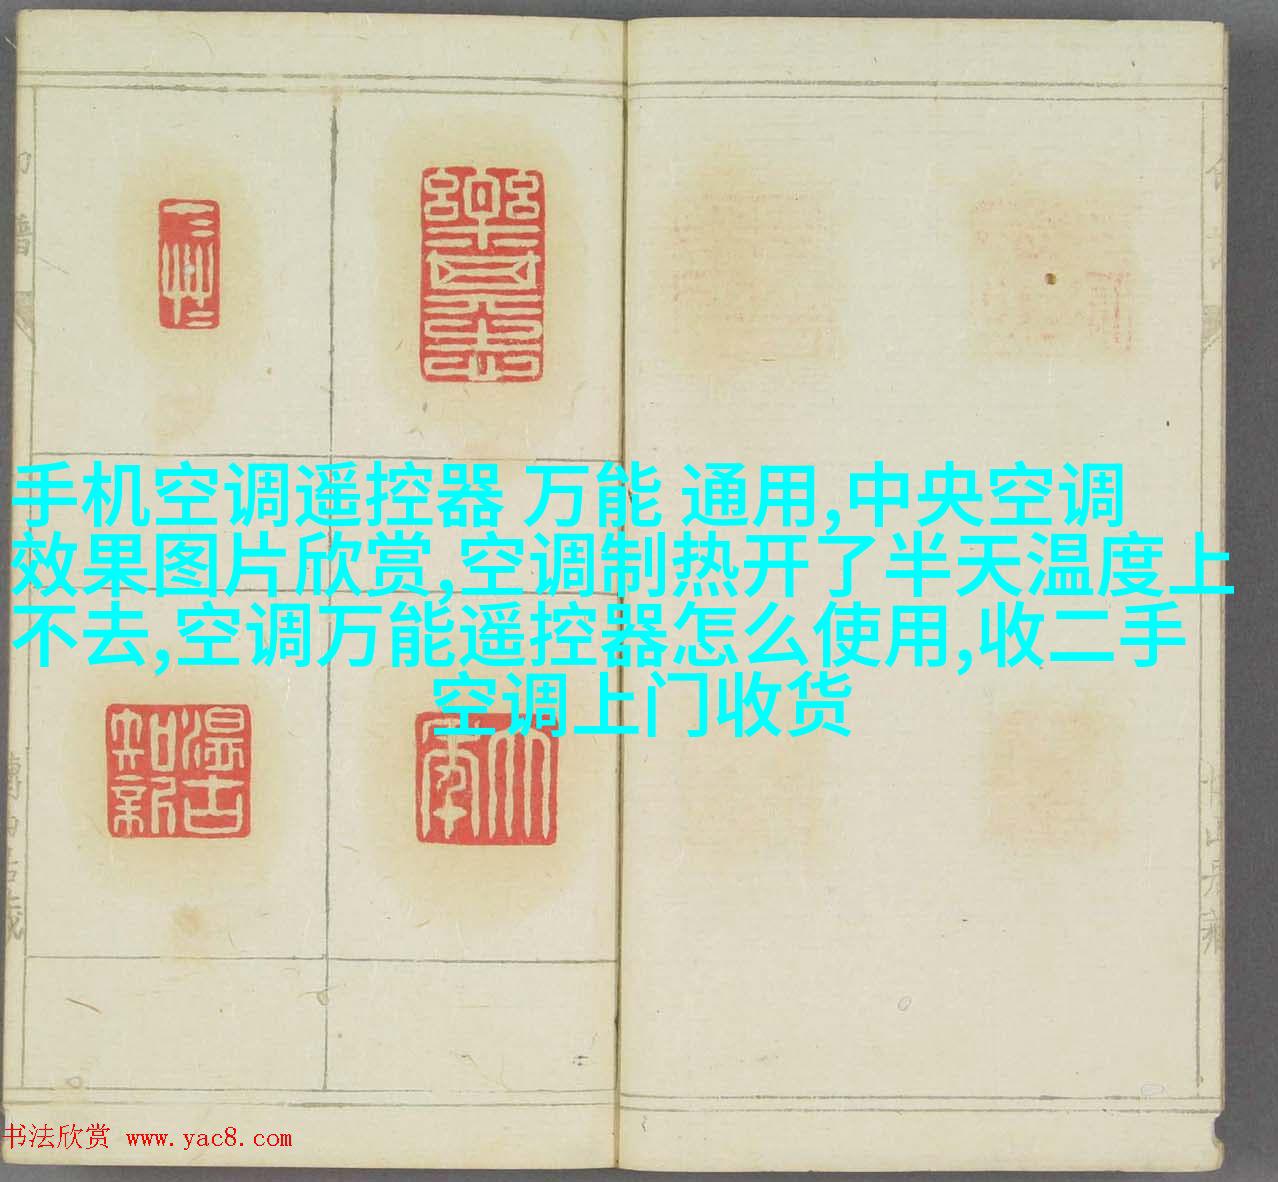 手机空调遥控器 万能 通用,中央空调
效果图片欣赏,空调制热开了半天温度上
不去,空调万能遥控器怎么使用,收二手
空调上门收货
温古
知新
书法欣赏 www.yac8.com